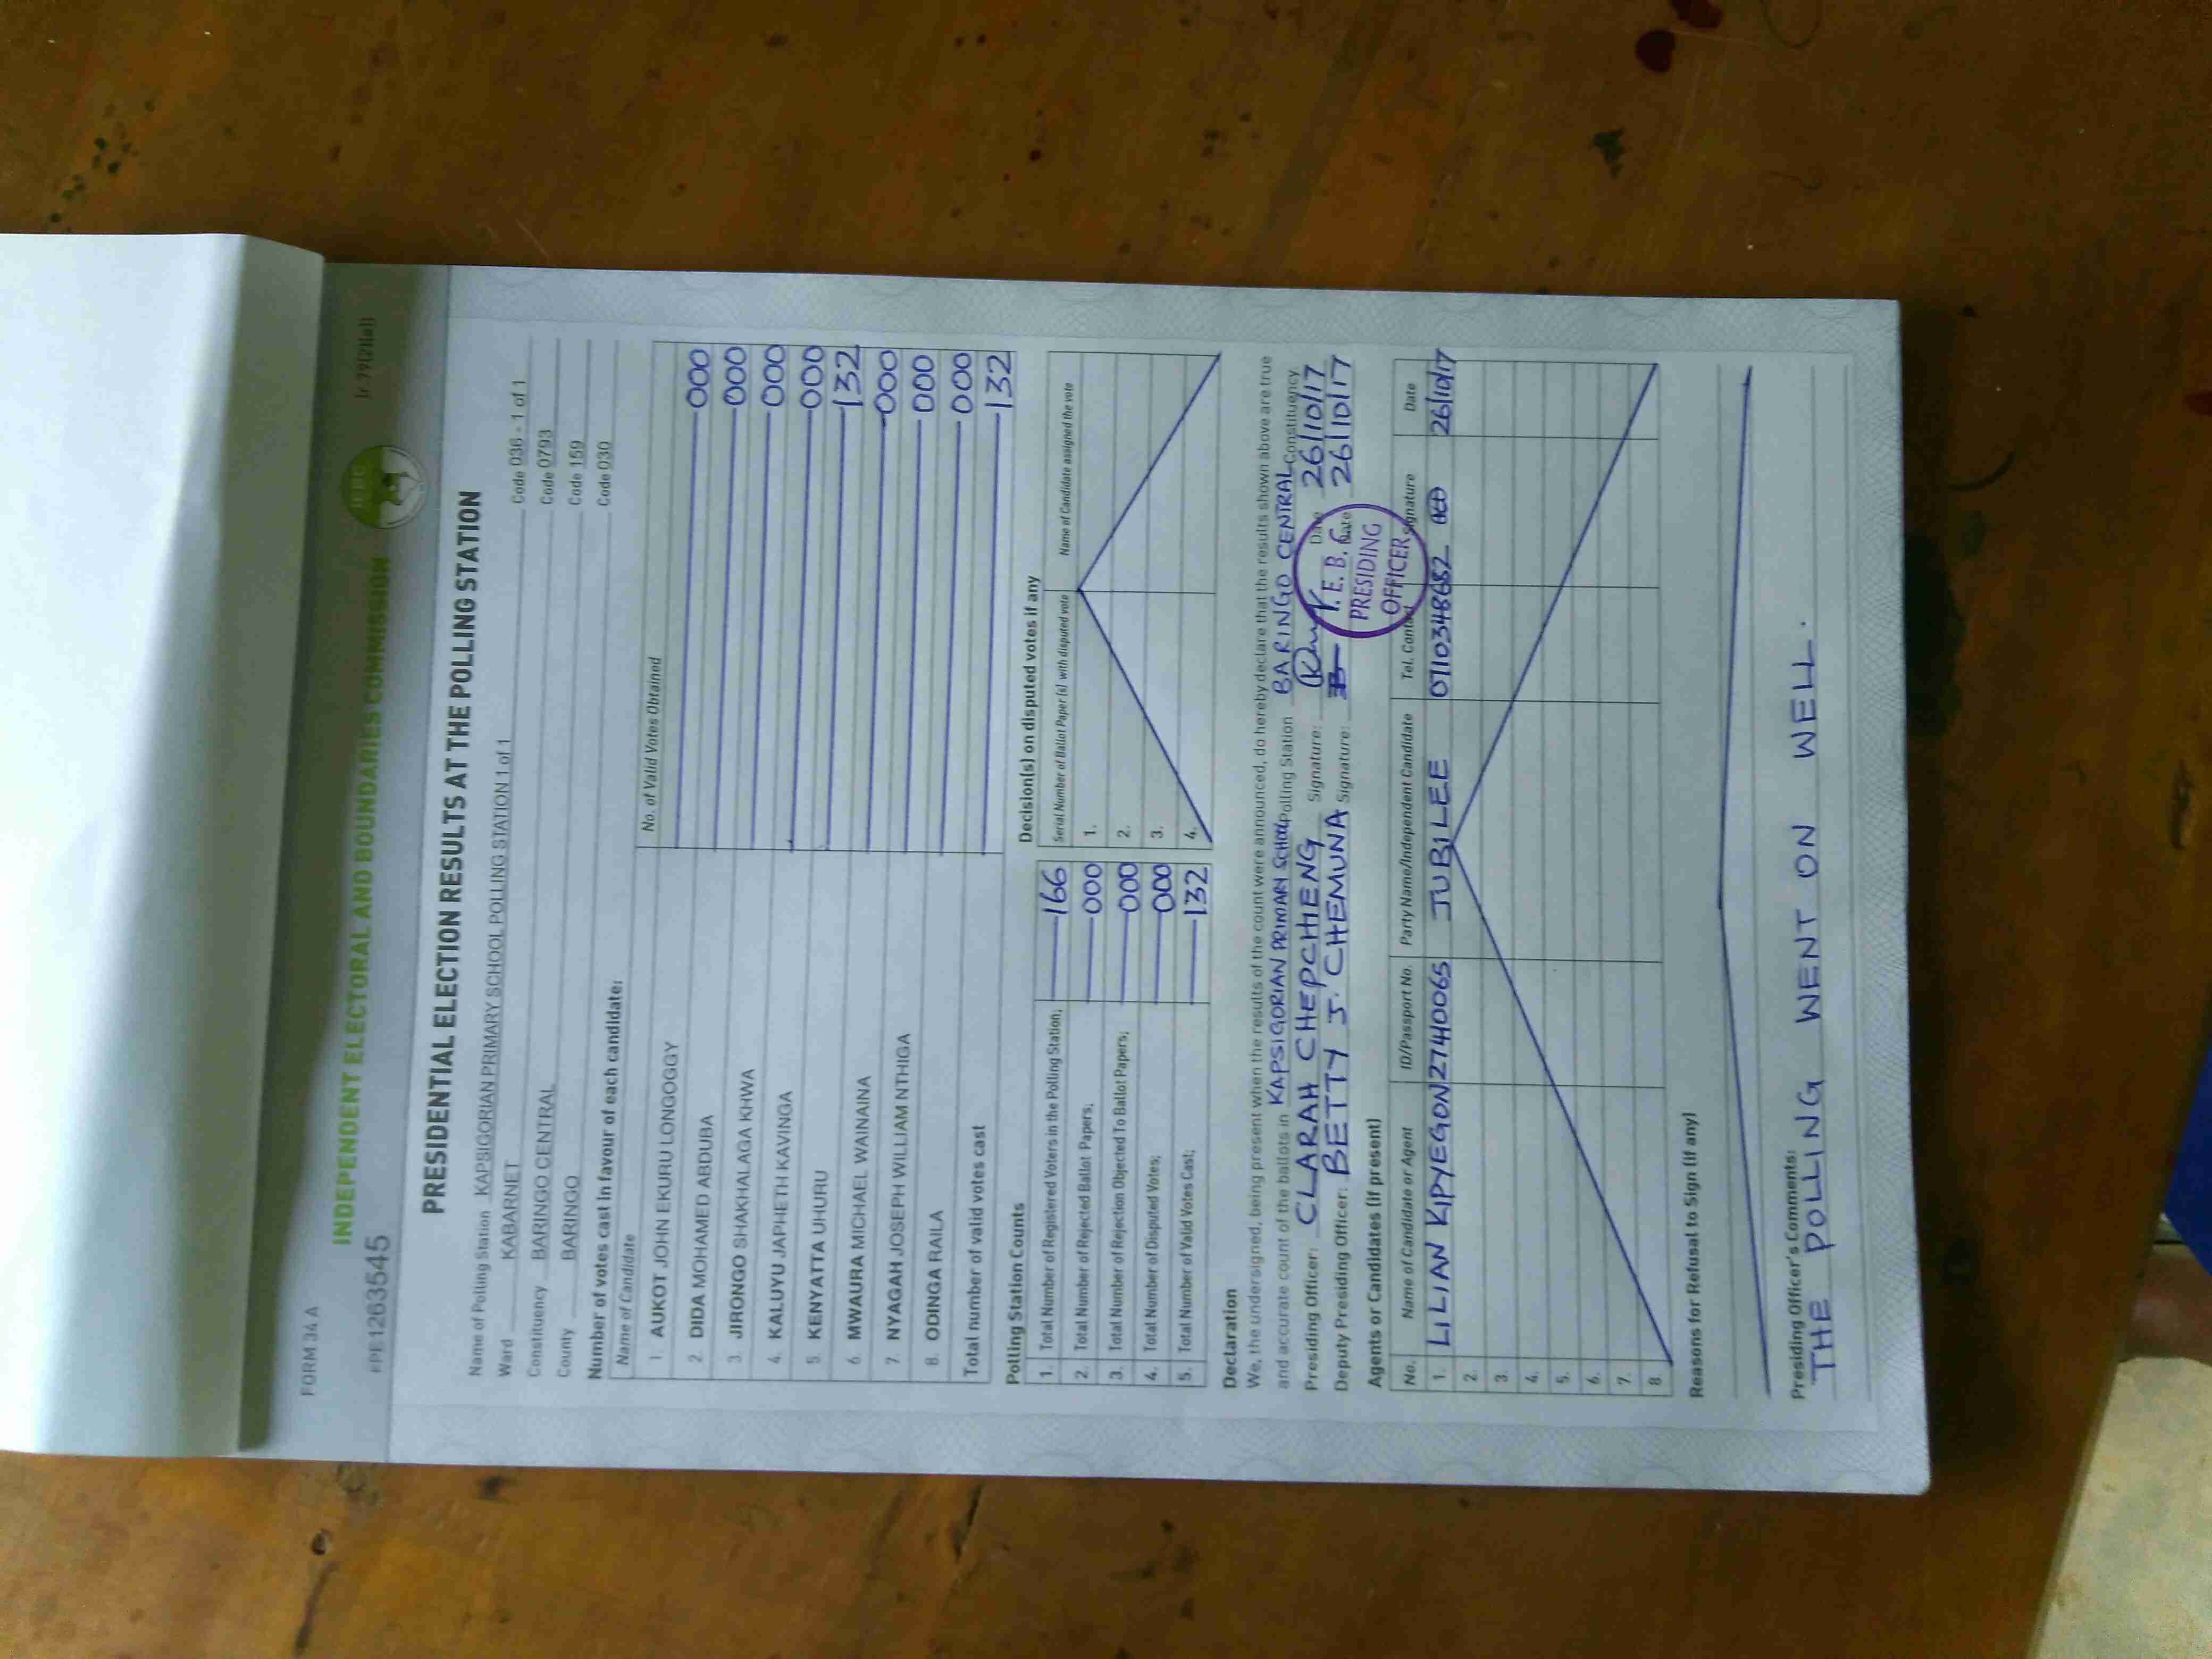 FORM 34 A
(r.79(2)(a))
INDEPENDENT ELECTORAL AND BOUNDARIES COMMISSION
IEBC
PRESIDENTIAL ELECTION RESULTS AT THE POLLING STATION
Name of Polling Station KAPSIGORIAN PRIMARY SCHOOL POLLING STATION 1 of 1 Code 036 - 1 of 1
Ward KABARNET Code 0793
Constituency BARINGO CENTRAL Code 159
County BARINGO Code 030
Number of votes cast in favour of each candidate:
Name of Candidate No. of Valid Votes Obtained
1. AUKOT JOHN EKURU LONGOGGY 000
2. DIDA MOHAMED ABDUBA 000
3. JIRONGO SHAKHALAGA KHWA 000
4. KALUYU JAPHETH KAVINGA 000
5. KENYATTA UHURU 132
6. MWAURA MICHAEL WAINAINA 000
7. NYAGAH JOSEPH WILLIAM NTHIGA 000
8. ODINGA RAILA 000
Total number of valid votes cast 132
Polling Station Counts
1. Total Number of Registered Voters in the Polling Station; 166
2. Total Number of Rejected Ballot Papers; 000
3. Total Number of Rejection Objected To Ballot Papers; 000
4. Total Number of Disputed Votes; 000
5. Total Number of Valid Votes Cast; 132
Decision(s) on disputed votes if any
Serial Number of Ballot Paper(s) with disputed vote Name of Candidate assigned the vote
1.
2.
3.
4.
Declaration
We, the undersigned, being present when the results of the count were announced, do hereby declare that the results shown above are true
and accurate count of the ballots in KAPSIGORIAN PRIMARY SCHOOL Polling Station BARINGO CENTRAL Constituency
Presiding Officer: CLARAH CHEPCHIENG Signature: Date 26/10/17
Deputy Presiding Officer: BETTY J. CHEMUNA Signature: Date 26/10/17
I.E.B.C
PRESIDING
OFFICER
Agents or Candidates (if present)
No. Name of Candidate or Agent ID/Passport No. Party Name/Independent Candidate Tel. Contact Signature Date
1. LILIAN KIPYEGON 27440065 JUBILEE 0710348682 26/10/17
2.
3.
4.
5.
6.
7.
8.
Reasons for Refusal to Sign (if any)
Presiding Officer's Comments:
THE POLLING WENT ON WELL.